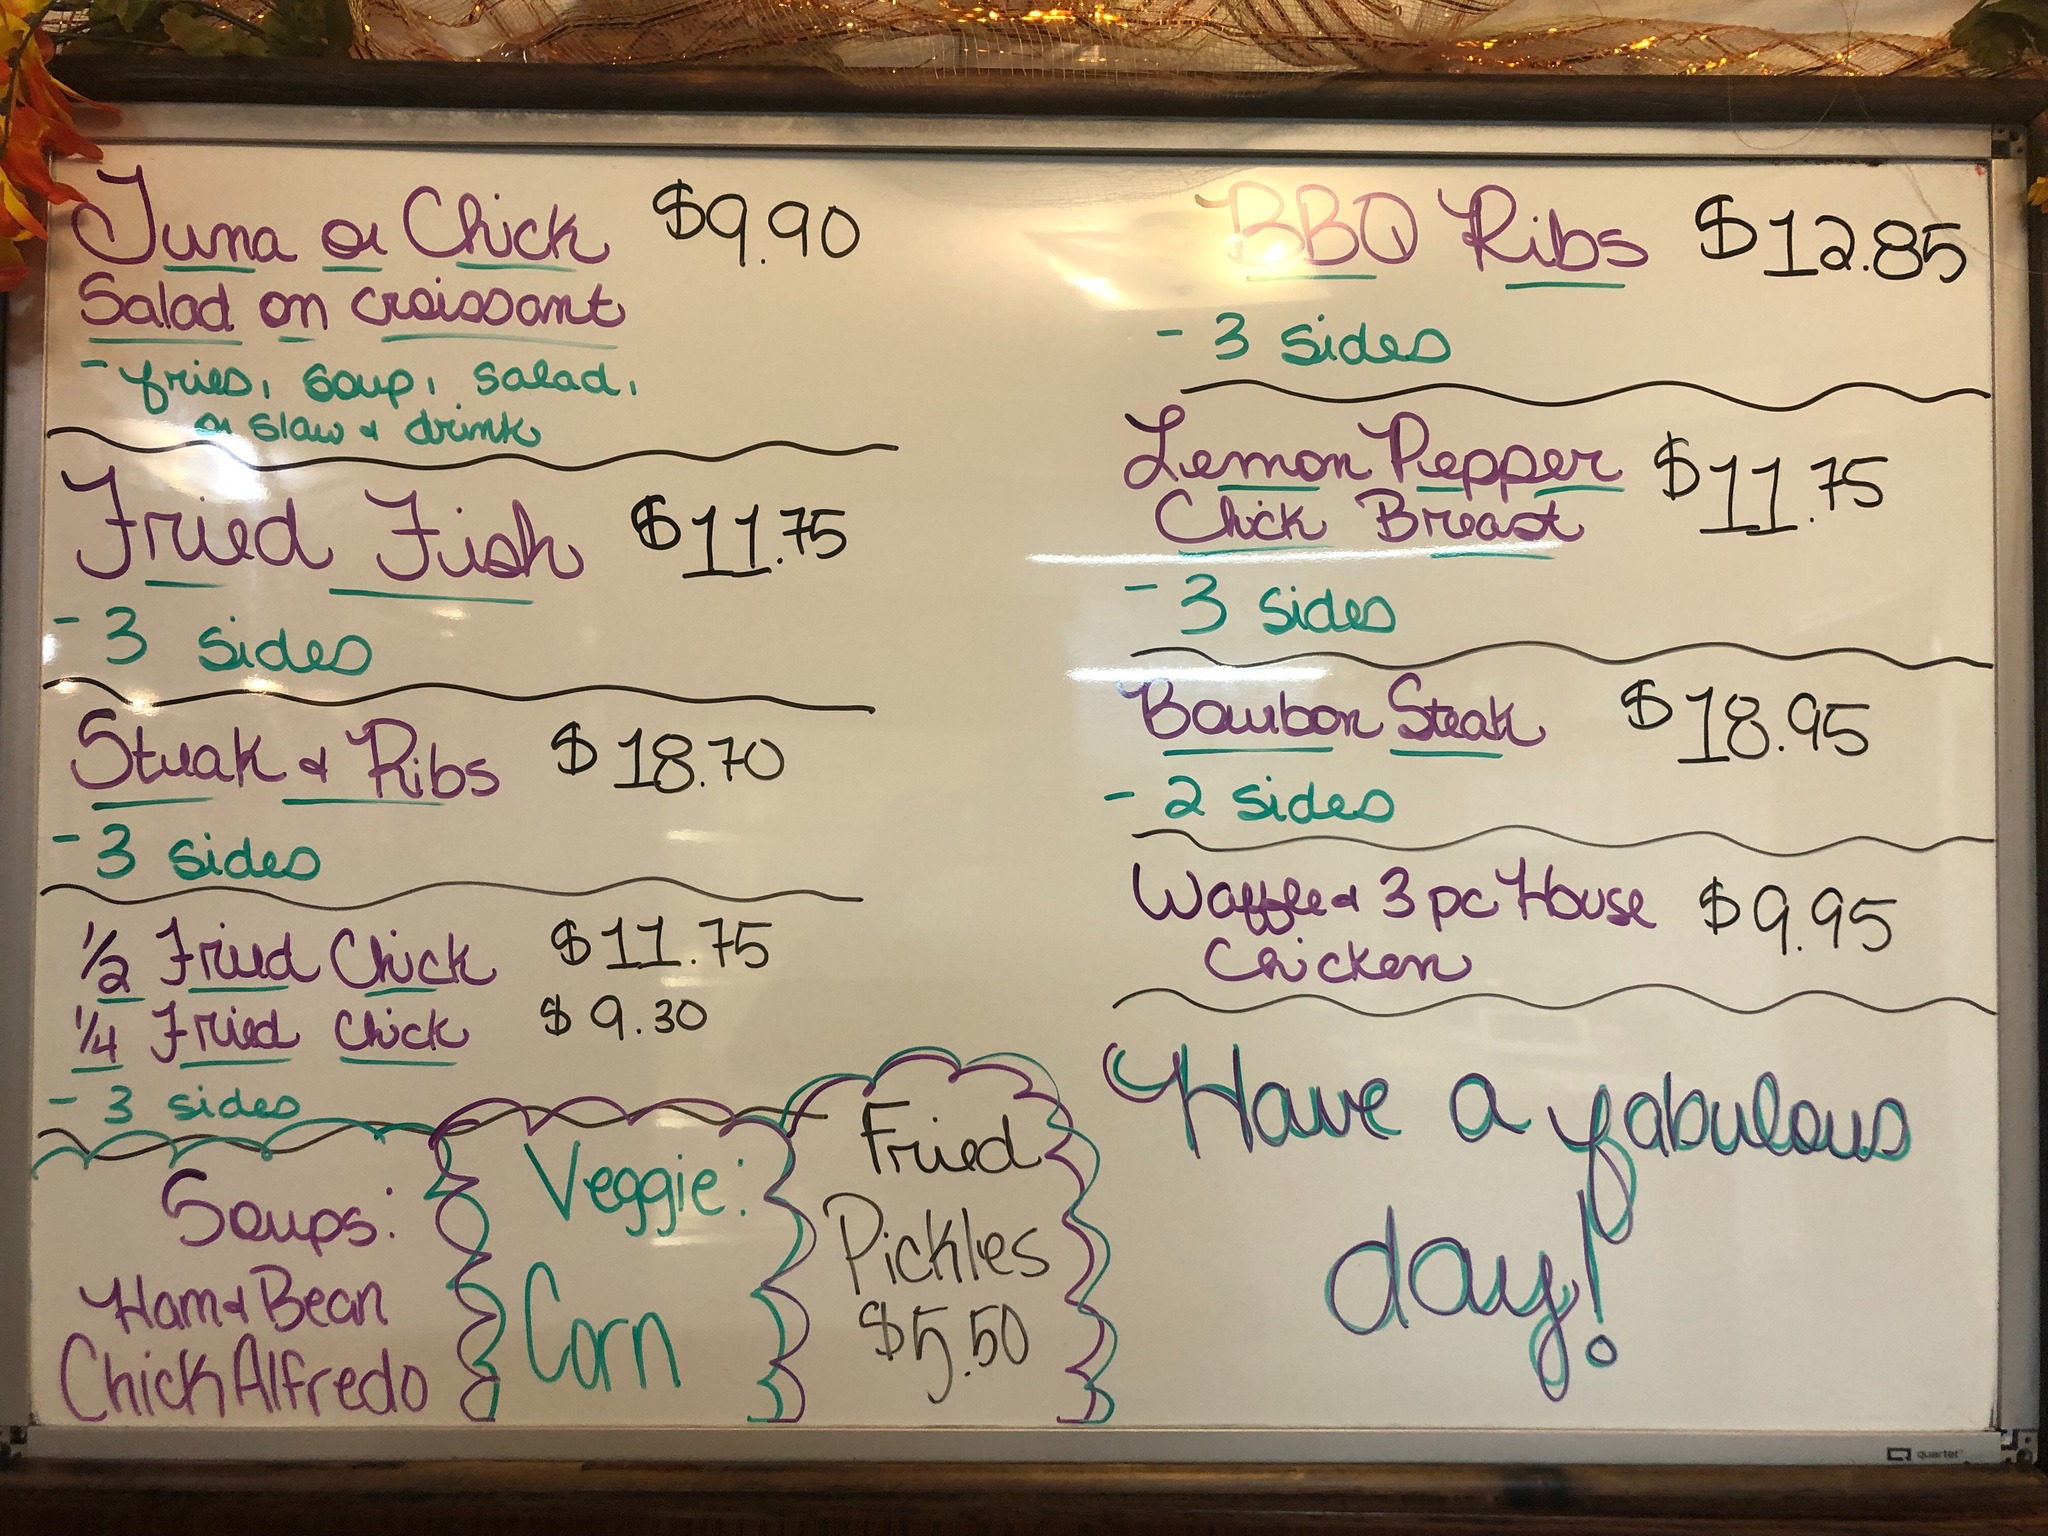 Tuna or Chick $9.90
Salad on croissant
- fries, soup, salad,
or slaw & drink
Fried Fish $11.75
- 3 sides
Steak & Ribs $18.70
- 3 sides
1/2 Fried Chick $11.75
1/4 Fried Chick $9.30
- 3 sides
Soups:
Ham & Bean
Chick Alfredo
Veggie:
Corn
Fried
Pickles
$5.50
BBQ Ribs $12.85
- 3 sides
Lemon Pepper $11.75
Chick Breast
- 3 sides
Bourbon Steak $18.95
- 2 sides
Waffle & 3 pc House $9.95
Chicken
Have a fabulous
day!
quartet